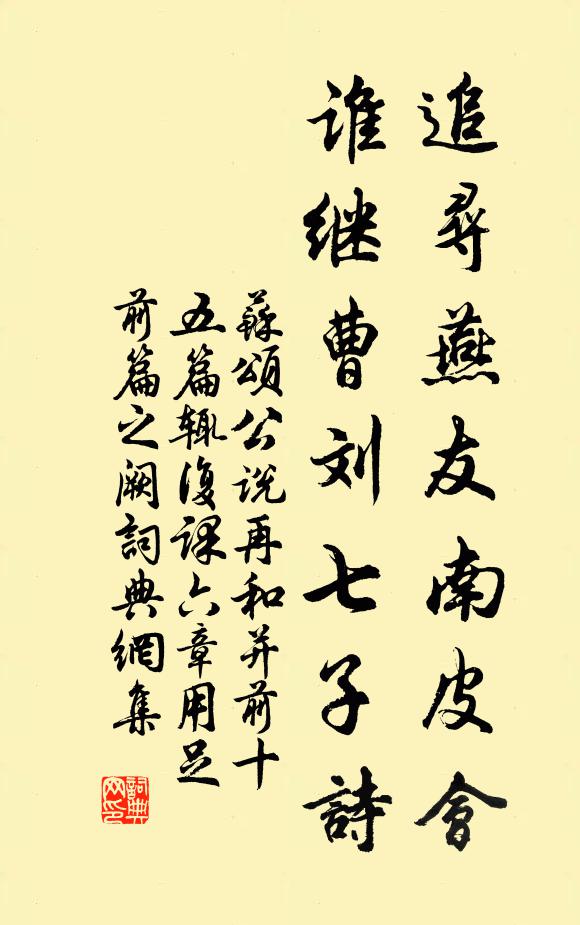 追尋燕友南皮會
谁继曹刘七子詩
蘇頌公说再和并前十
五篇辄復课六章用足
前篇之阙詞典網集
詞典
网印